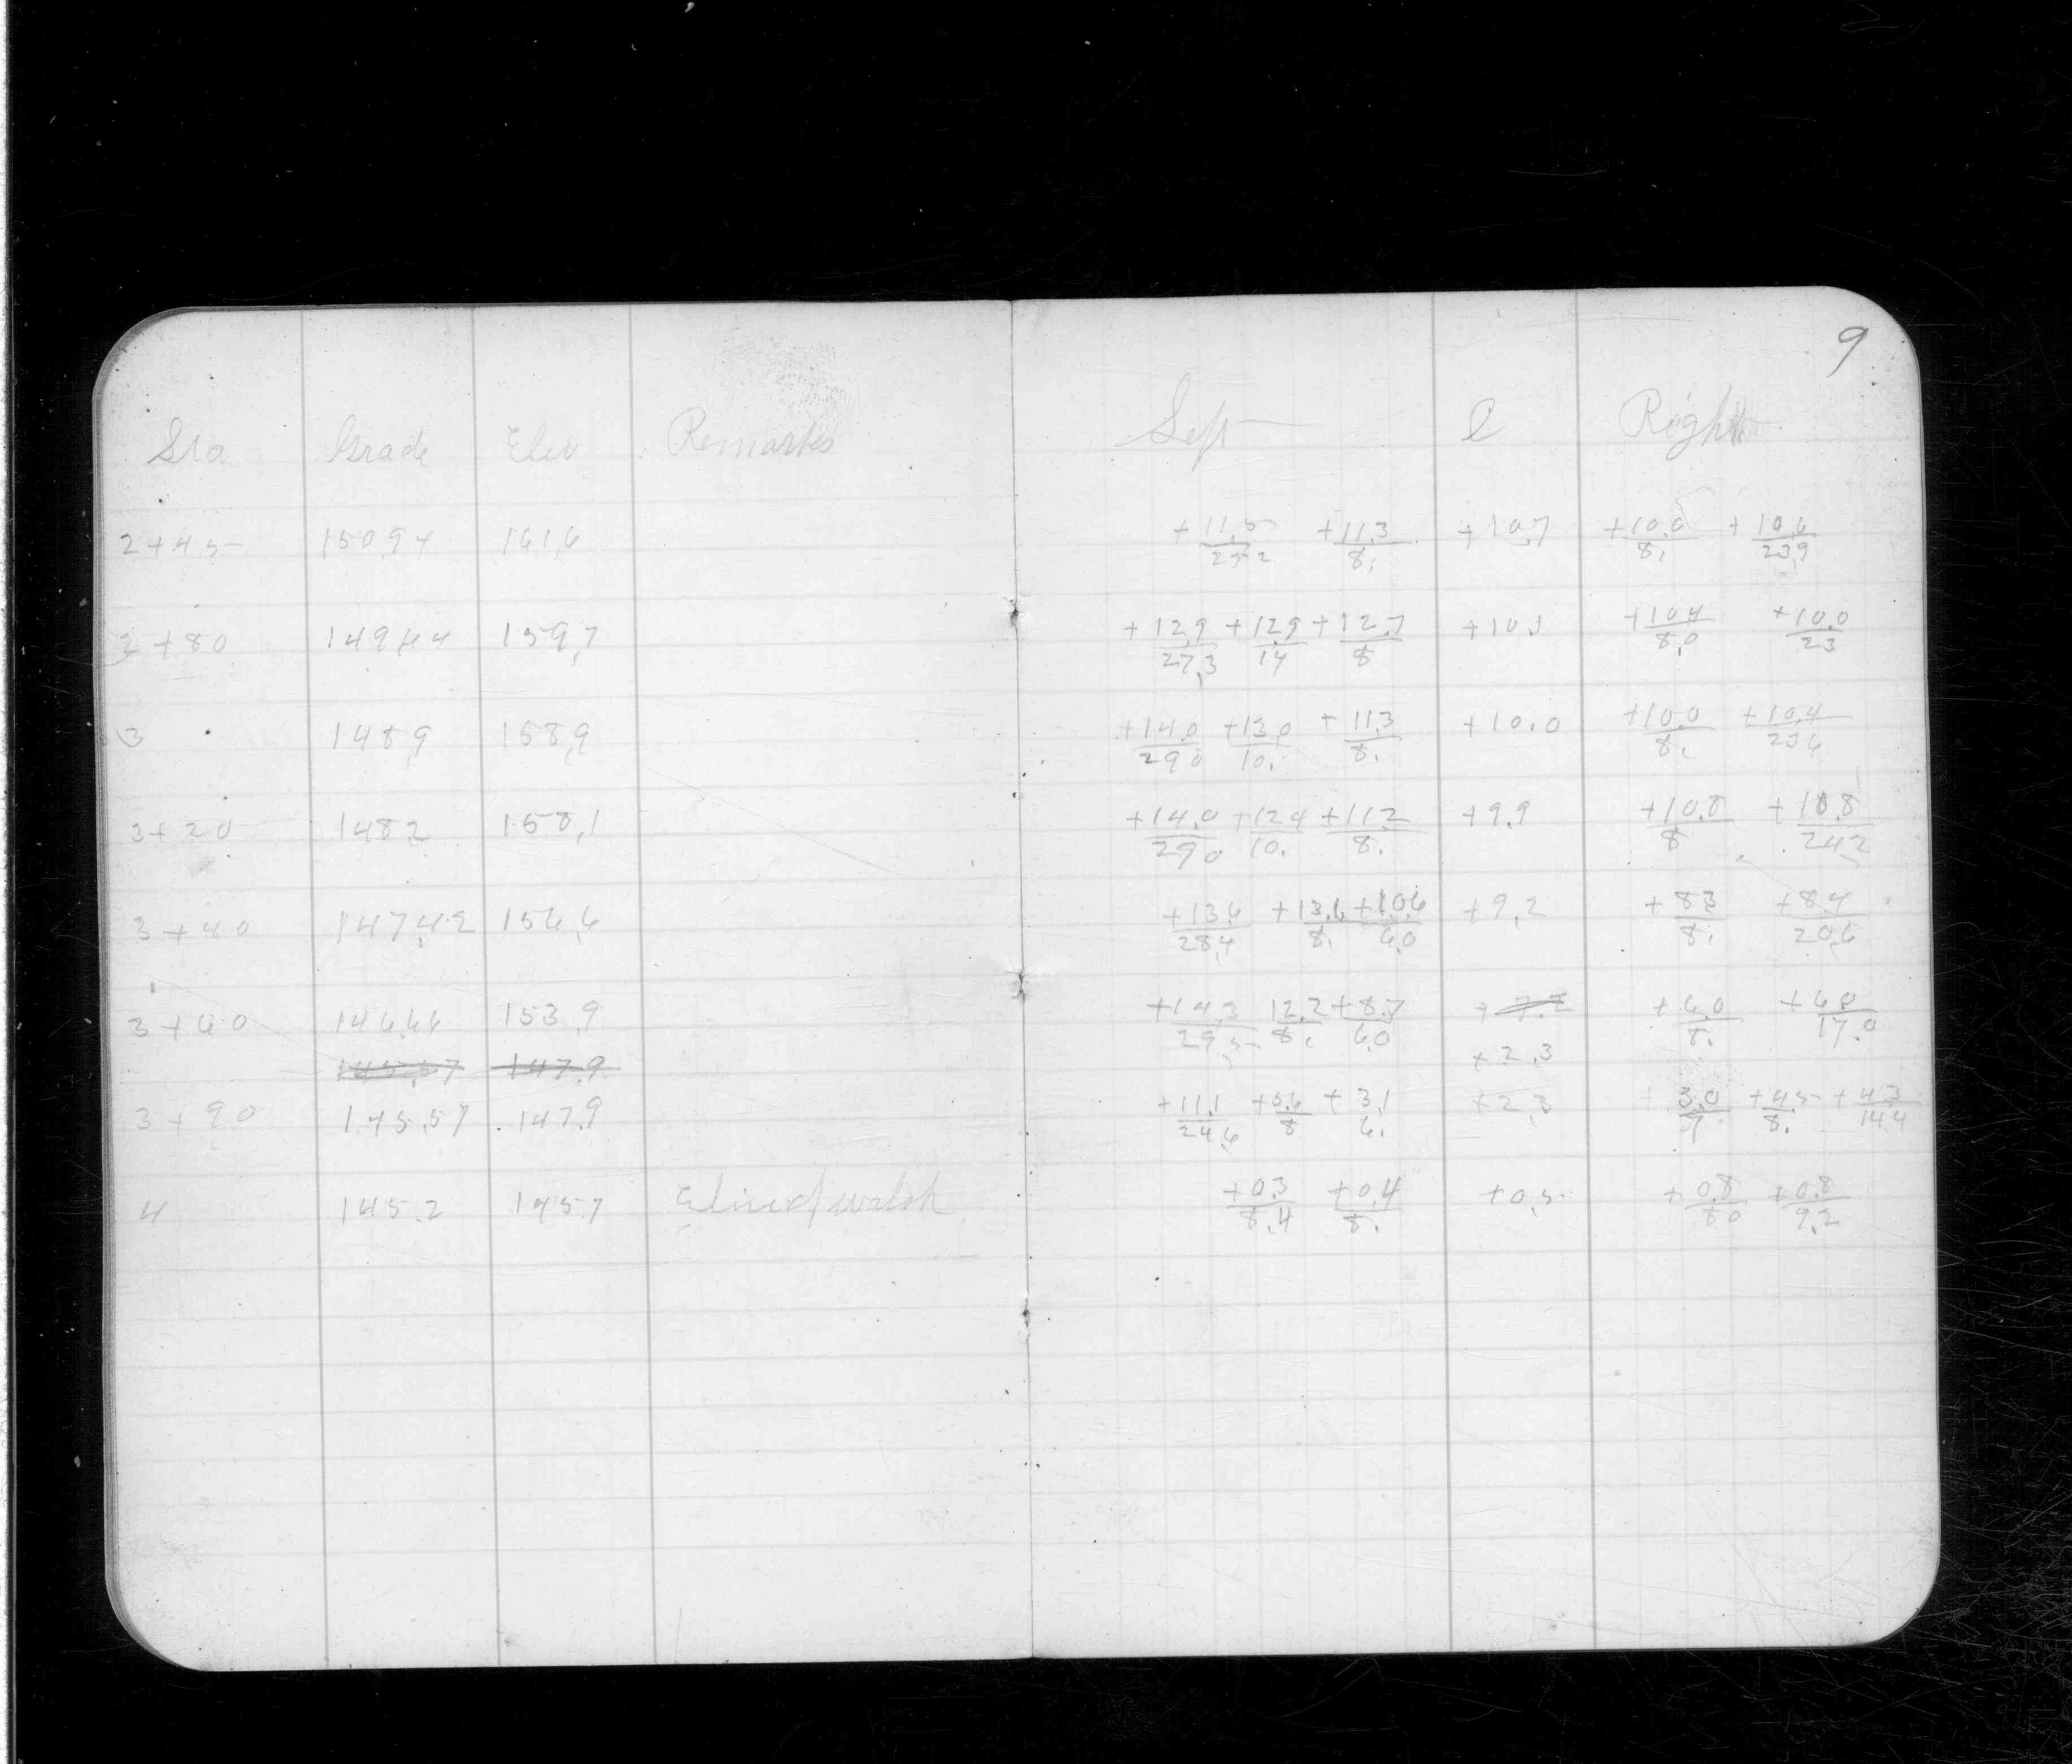 9
Sta Grade Elev Remarks Left C Right
2+45 150.94 161.6 +11.5/25.2 +11.3/8. +10.7 +10.0/8. +10.6/23.9
2+80 149.64 159.7 +12.9/27.3 +12.9/14 +12.7/8 +10.1 +10.4/8.0 +10.0/23
3 148.9 158.9 +14.0/29.0 +13.0/10. +11.3/8. +10.0 +10.0/8. +10.4/23.6
3+20 148.2 158.1 +14.0/29.0 +12.4/10. +11.2/8. +9.9 +10.8/8 +10.8/24.2
3+40 147.42 156.6 +13.6/28.4 +13.6/8. +10.6/6.0 +9.2 +8.3/8. +8.4/20.6
3+60 146.66 153.9 +14.3/29.5 12.2/8. +8.7/6.0 +7.2 +6.0/8. +6.0/17.0
145.57 147.9 +2.3
3+90 145.57 147.9 +11.1/24.6 +5.6/8 +3.1/6. +2.3 3.0/7 +4.5/8. +4.3/14.4
4 145.2 145.7 +0.3/8.4 +0.4/8. +0.5 +0.8/8.0 +0.8/9.2